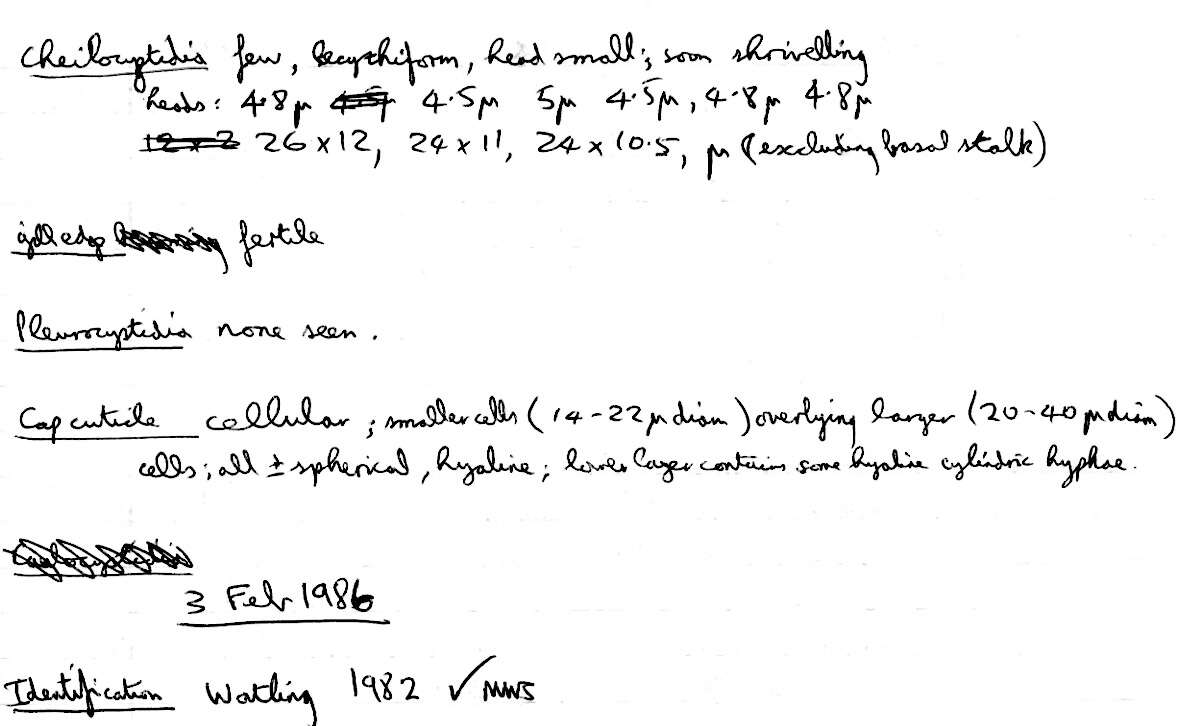 Cheilocystidia few, lecythiform, head small; soon shrivelling
heads: 4.8µ 4.5µ 4.5µ 5µ 4.5µ, 4.8µ 4.8µ
12 x 2 26 x 12, 24 x 11, 24 x 10.5, µ (excluding basal stalk)
gill edge fertile
Pleurocystidia none seen.
Cap cuticle cellular; smaller cells (14-22 µ diam) overlying larger (20-40 µ diam)
cells; all ± spherical, hyaline; lower layer contains some hyaline cylindric hyphae.
Caulocystidia
3 Feb 1986
Identification Watling 1982 ✓ MWS